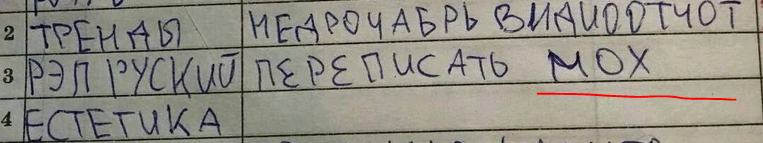 2 ТРЕНДЫ НЕДРОЧАБРЬ ВИДИООТЧОТ
3 РЭП РУСКИЙ ПЕРЕПИСАТЬ МОХ
4 ЕСТЕТИКА